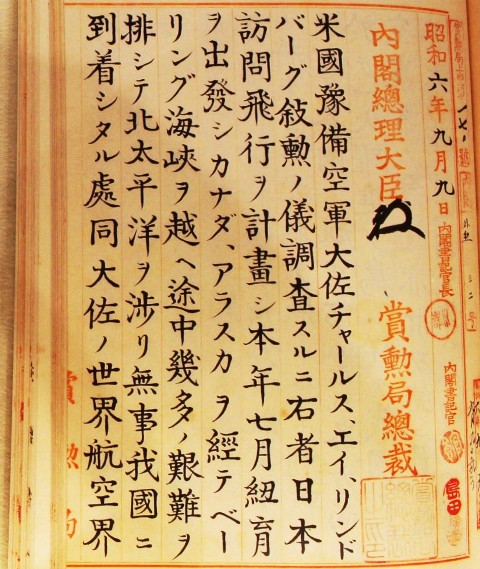 昭和六年九月九日
内閣書記官長
内閣書記官
内閣總理大臣
賞勲局總裁
米國豫備空軍大佐チャールス、エイ、リンド
バーグ敍勲ノ儀調査スルニ右者日本
訪問飛行ヲ計畫シ本年七月紐育
ヲ出發シカナダ、アラスカヲ經テベー
リング海峽ヲ越ヘ途中幾多ノ艱難ヲ
排シテ北太平洋ヲ涉リ無事我國ニ
到着シタル處同大佐ノ世界航空界
賞勲局